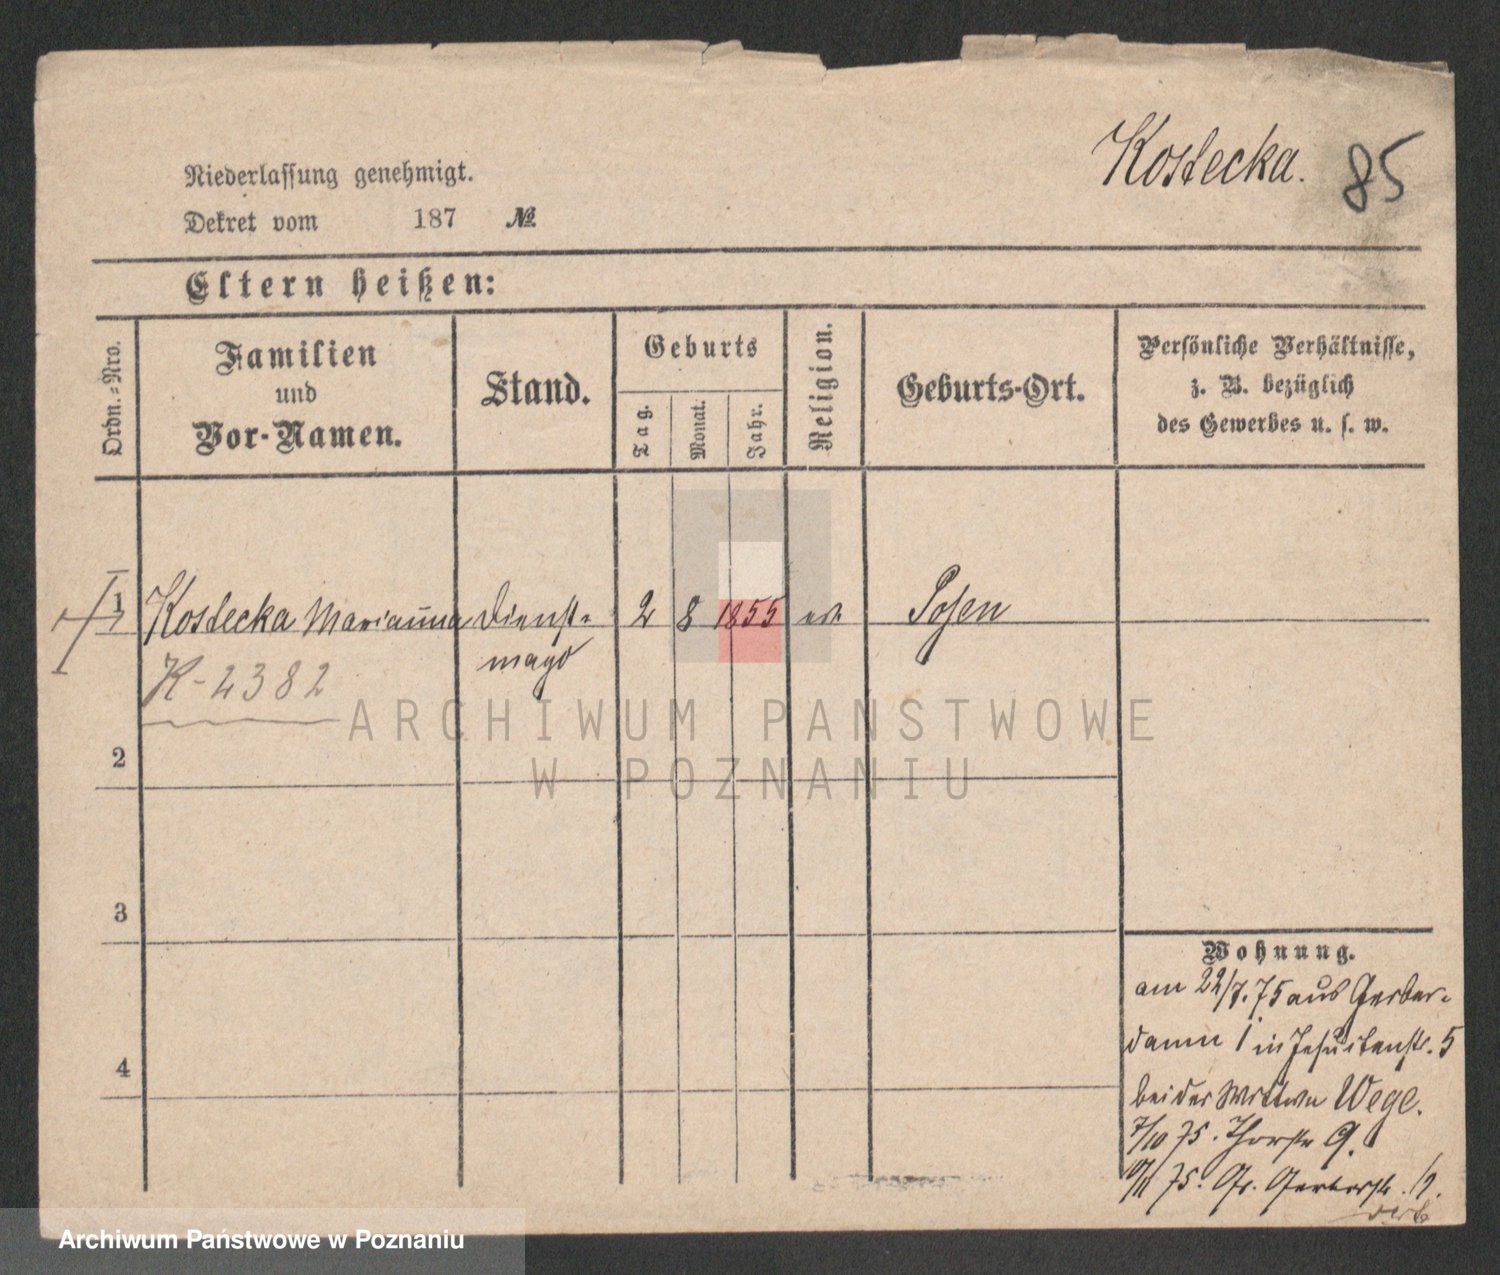 Kostecka. 85
Niederlassung genehmigt.
Dekret vom 187 №
Eltern heißen:
Ordn.-Nro.
Familien
und
Vor-Namen.
Stand.
Geburts
Tag.
Monat.
Jahr.
Religion.
Geburts-Ort.
Persönliche Verhältnisse,
z. B. bezüglich
des Gewerbes u. s. w.
1 Kostecka Marianna Dienst- 2 8 1855 Posen
magd
K-2382
ARCHIWUM PANSTWOWE
W POZNANIU
2
3
4
Wohnung.
am 22/7. 75 aus Gerber-
damm 1 in Jesuitenstr. 5
bei der Wittwe Wege.
7/10 75. Thorstr 9.
75. Gr. Gerberstr.
Archiwum Państwowe w Poznaniu